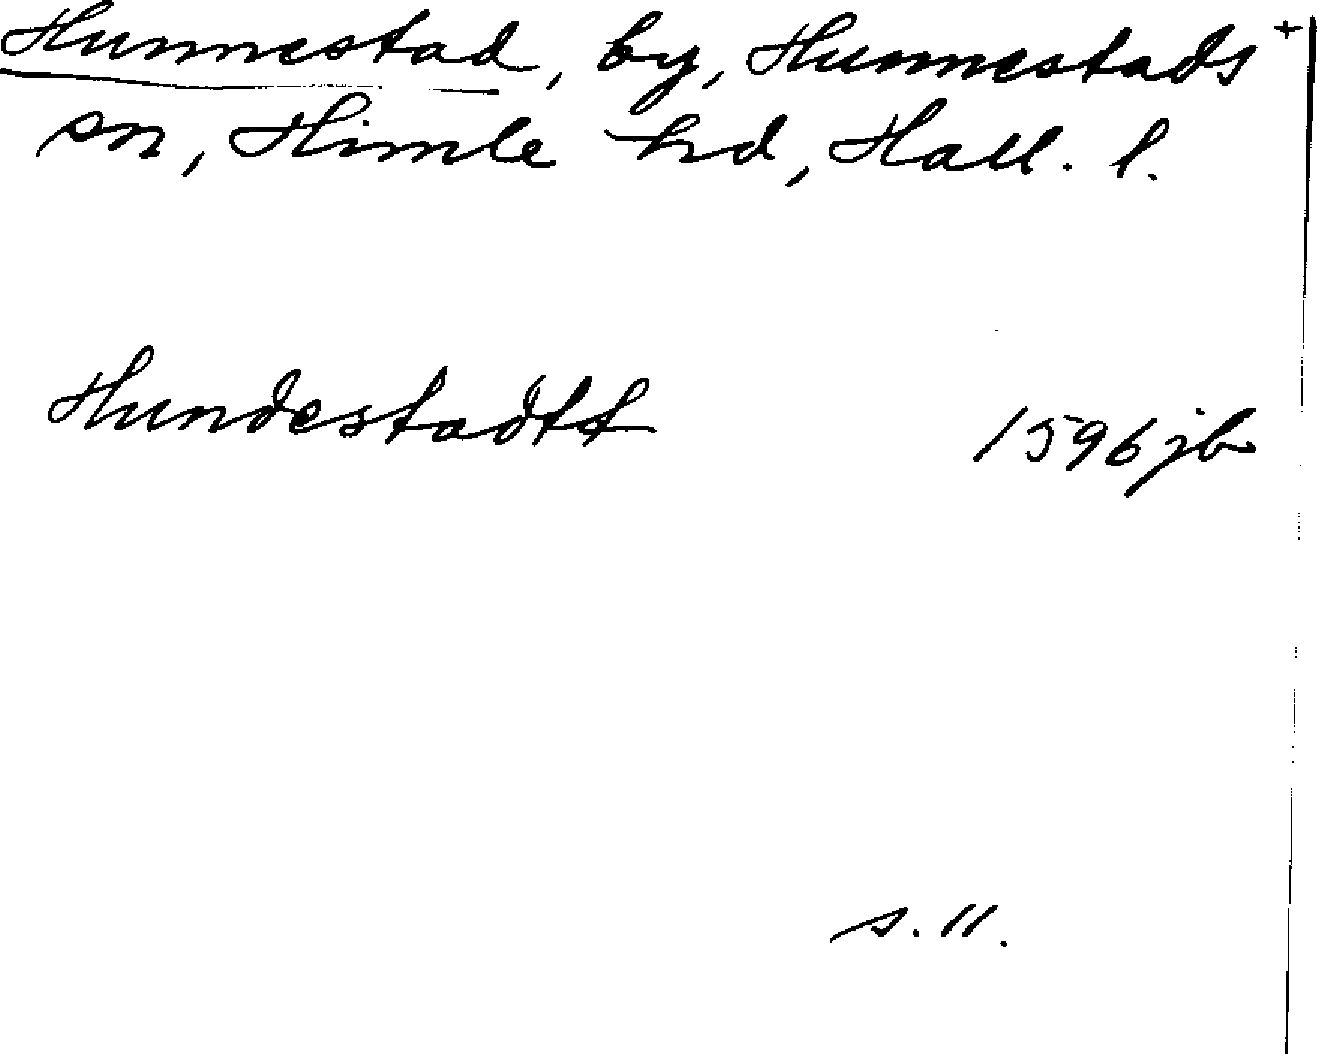 Hunnestad, by, Hunnestads +
sn, Himle hd, Hall. l.
Hundestadtt 1596 jb
s. 11.